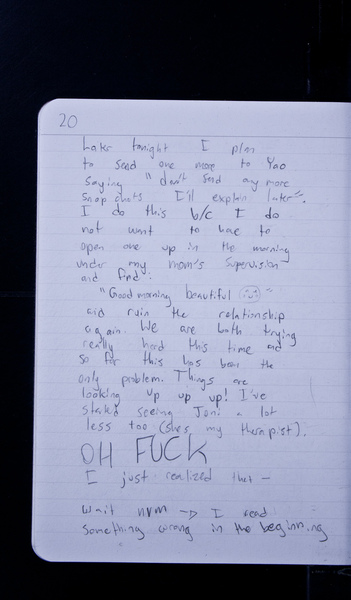 20
Later tonight I plan
to send one more to Yao
saying "don't send any more
snapchats I'll explain later".
I do this b/c I do
not want to have to
open one up in the morning
under my mom's supervision
and find:
"Good morning beautiful 😊"
and ruin the relationship
again. We are both trying
really hard this time and
so far this has been the
only problem. Things are
looking up up up! I've
started seeing Joni a lot
less too (she's my therapist).
OH FUCK
I just realized that —
Wait nvm -> I read
something wrong in the beginning